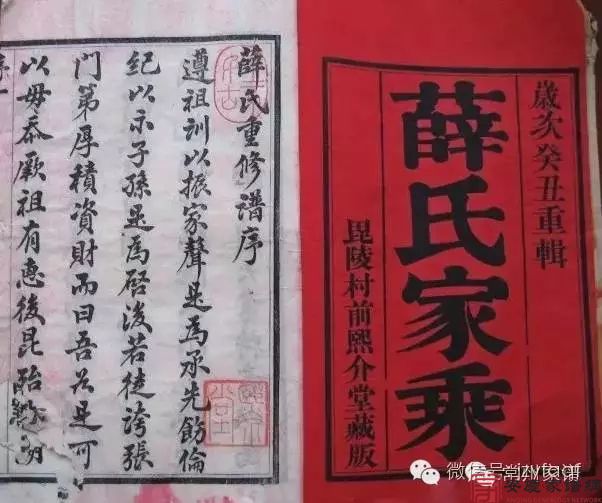 歲次癸丑重輯
薛氏家乘
毘陵村前熙介堂藏版
薛氏重修譜序
遵祖訓以振家聲是為承先飭倫
紀以示子孫是為啓後若徒誇張
門第厚積資財而曰吾於是可
以毋忝厥祖有惠後昆貽
序一
微信号 jzyfaqf